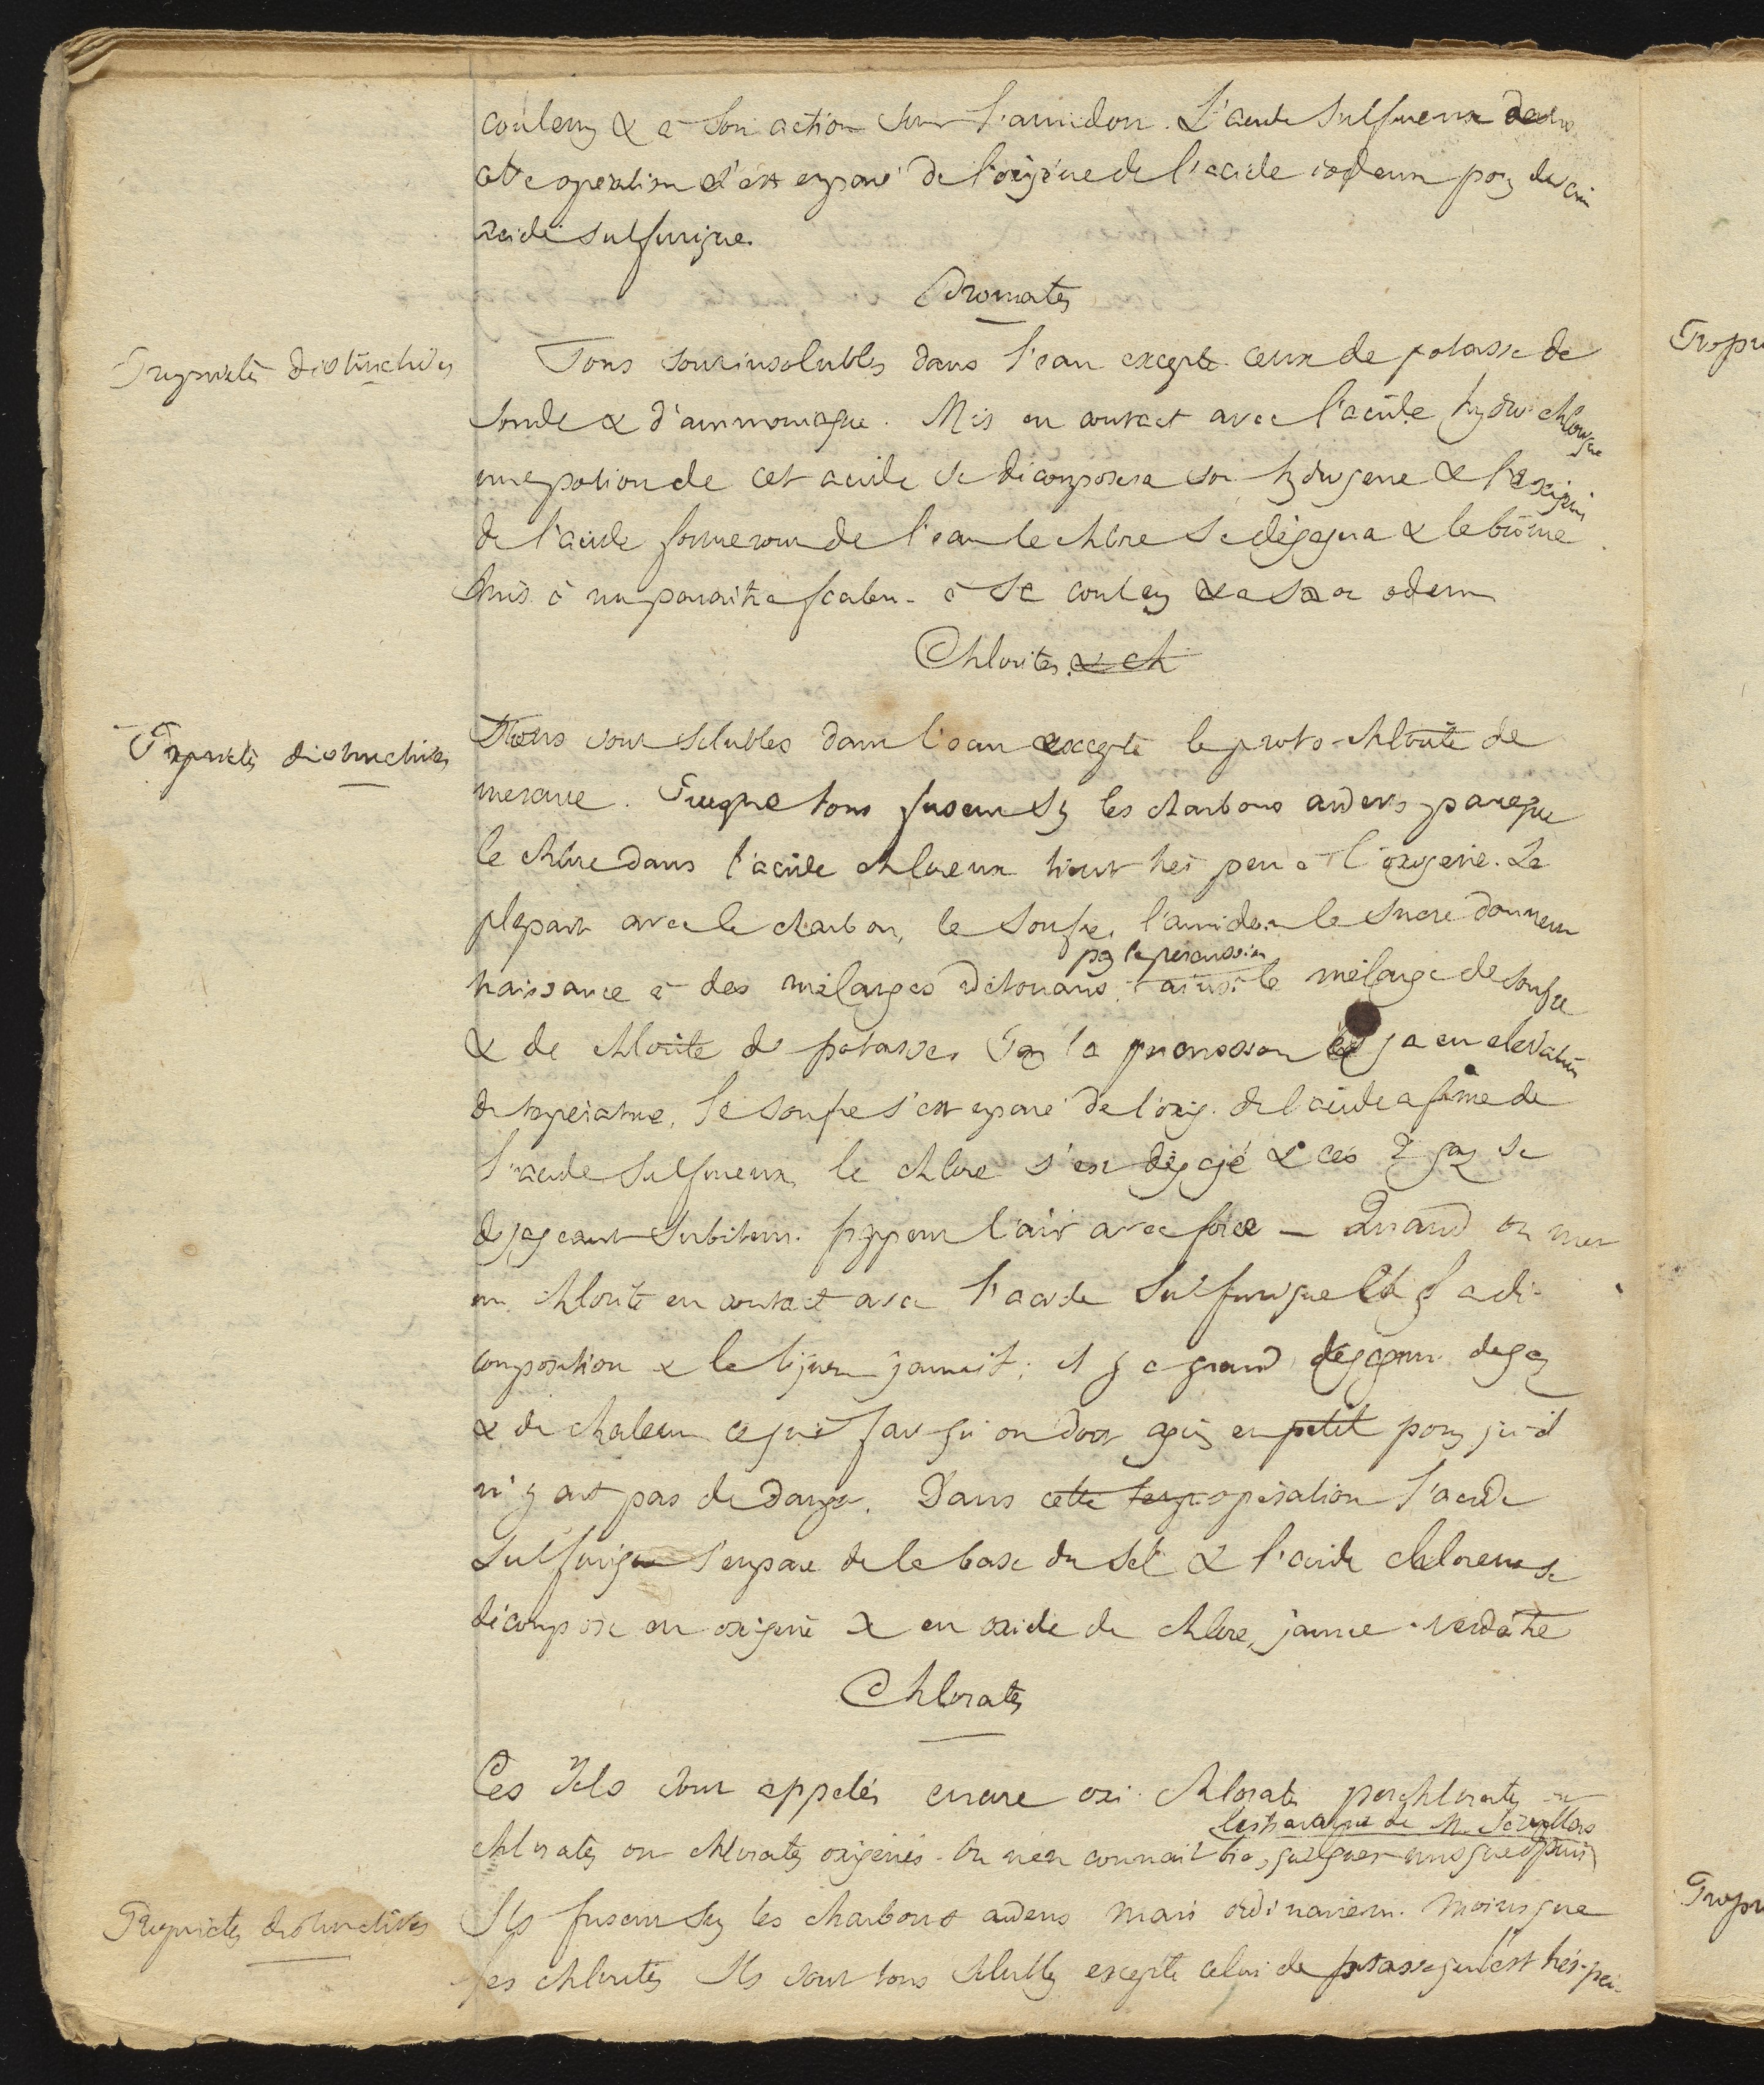 couleur & à son action sur l'amidon. L'acide sulfureux dans
cette opération s'est emparé de l'oxigène de l'acide iodeux pour devenir
acide sulfurique.
Bromates
Propriétés distinctives
Tous sont insolubles dans l'eau excepté ceux de potasse de
soude & d'ammoniaque. Mis en contact avec l'acide hydrochlorique
une portion de cet acide se décomposera son hydrogene & l'oxigène
de l'acide formeront de l'eau le chlore se dégagera & le brôme
mis à nu paraitra à sa couleur & a son odeur
Chlorites. & ch
Propriétés distinctives
Tous sont solubles dans l'eau excepté le proto-chlorite de
mercure. Presque tous fusent sur les charbons ardens parceque
le chlore dans l'acide chloreux tient très peu à l'oxigene. La
plupart avec le charbon, le soufre, l'amidon le sucre donnent
par la percussion
naissance à des mélanges détonans, ainsi le mélange de soufre
& de chlorite de potasse. Par la percussion il y a eu elevation
de température, le soufre s'est emparé de l'oxig. de l'acide a formé de
l'acide sulfureux, le chlore s'est dégagé & ces 2 gaz se
dégageant subitem. frappent l'air avec force - Quand on met
un chlorite en contact avec l'acide sulfurique il y a dé-
composition & le liquide jaunit; il y a grand dégagem. de gaz
& de chaleur ce qui fait qu'on doit agir en petit pour qu'il
n'y ait pas de danger. Dans cette temp opération l'acide
sulfurique s'empare de la base du sel & l'acide chloreux se
décompose en oxigène & en oxide de chlore, jaune-verdâtre
Chlorates
Ces sels sont appelés encore oxi-chlorates perchlorates ou
les travaux de M. Serullas
chlorates ou chlorates oxigénés. On n'en connait bien quelques uns que depuis
Propriétés distinctives
Ils fusent sur les charbons ardens mais ordinairem. moins que
les chlorites Ils sont tous solubles excepté celui de potasse qui l'est très-peu.